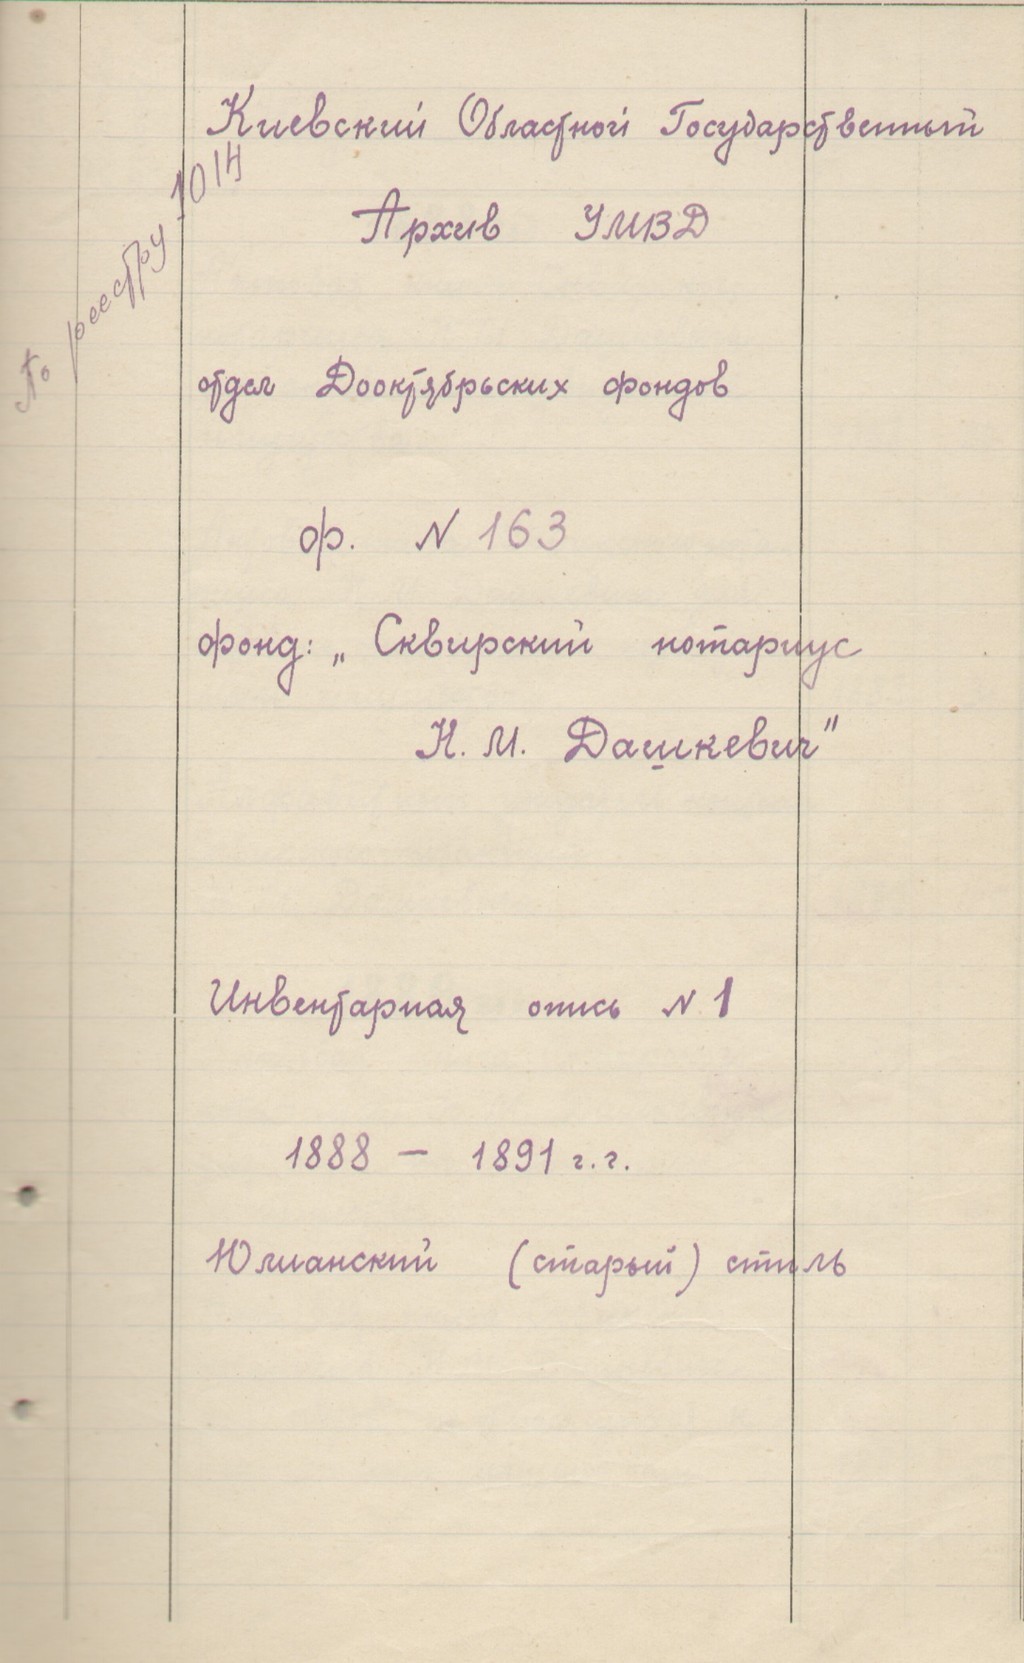 Киевский Областной Государственный
По реестру 1014
Архив УМВД
отдел Дооктябрьских фондов
ф. N 163
фонд: „Сквирский нотариус
К. М. Дашкевич"
Инвентарная опись N 1
1888 — 1891 г.г.
Юлианский (старый) стиль